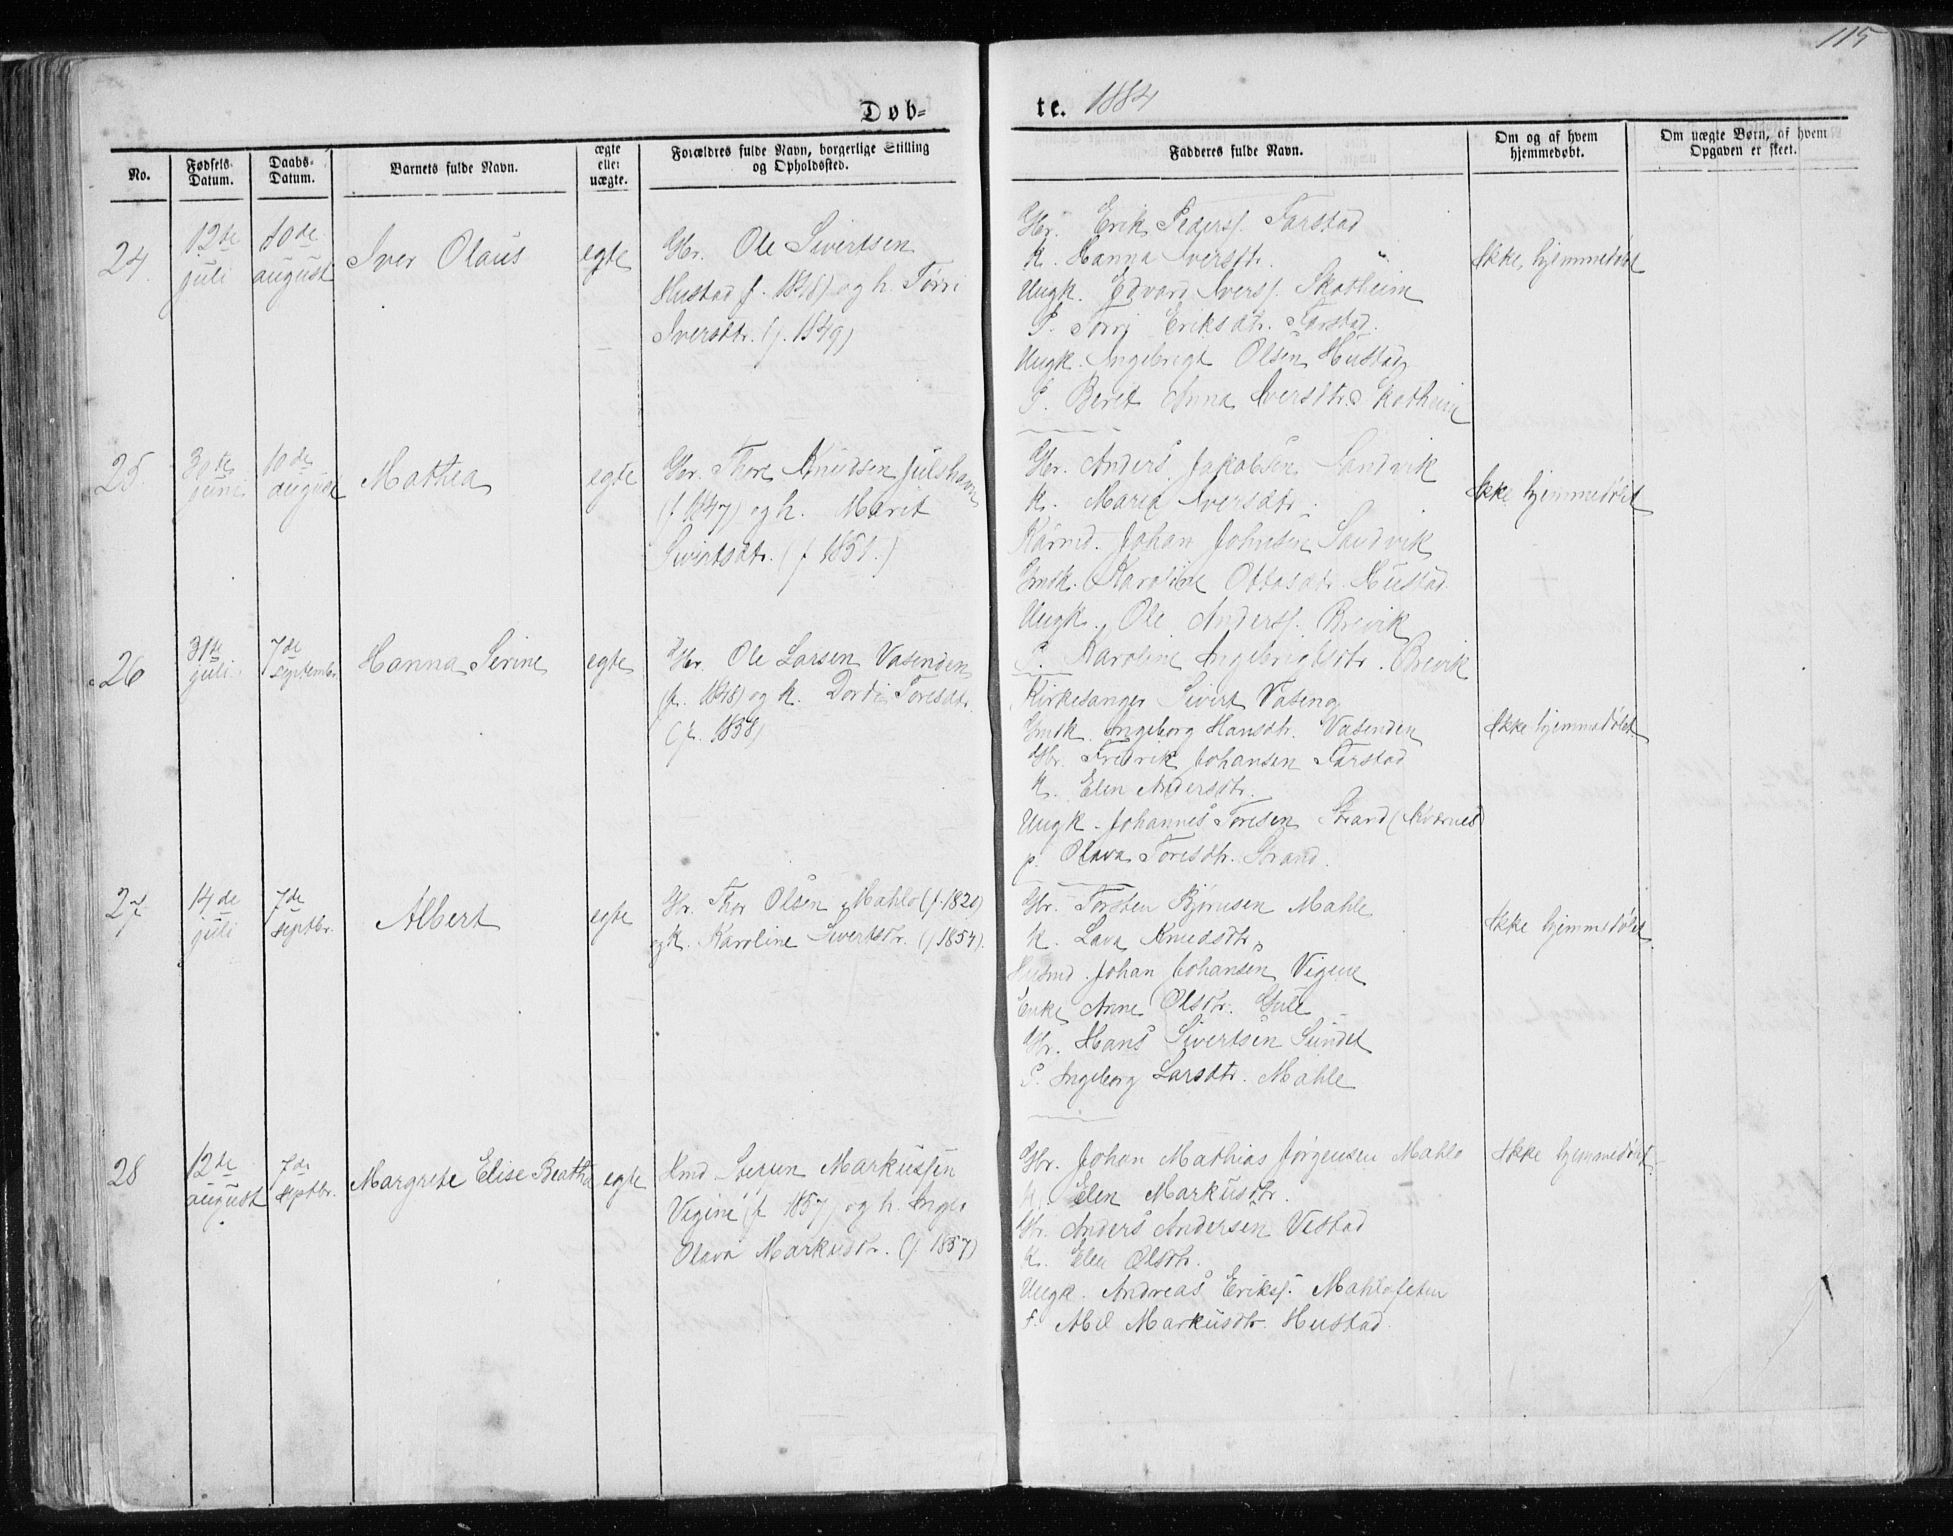 115
Døb-
te. 1884
No.
Fødsels-
Datum.
Daabs-
Datum.
Barnets fulde Navn.
ægte
eller
uægte.
Forældres fulde Navn, borgerlige Stilling
og Opholdssted.
Fadderes fulde Navn.
Om og af hvem
hjemmedøbt.
Om uægte Børn, af hvem
Opgaven er skeet.
24.
12te
juli
10de
august
Iver Olaus
egte
Gbr. Ole Sivertsen
Hustad f. 1848) og h. Tørri
Iversdtr. (f. 1849)
Gbr. Erik Peders. Farstad
K. Hanna Iversdtr.
Ungk. Edvard Ivers. Skotheim
P. Torij Eriksdtr. Farstad.
Ungk. Ingebrigt Olsen Hustad
P. Beret Anna Iversdtr. Skotheim
Ikke hjemmedøbt
25.
30te
juni
10de
august
Mathea
egte
Gbr. Thore Knudsen Julshavn
(f 1847) og h. Marit
Sivertsdtr. (f 1851.)
Gbr. Anders Jakobsen Sandvik
K. Maria Iversdtr.
Kaarmd. Johan Johnsen Sandvik
Gmdk. Karoline Ottosdtr. Hustad
Ungk. Ole Anders. Brevik
P. Karoline Ingebrigtsdtr. Brevik
Ikke hjemmedøbt
26
31te
juli
7de
september
Hanna Serine
egte
Gbr. Ole Larsen Vasenden
(f. 1848) og k. Dordi Toresdtr.
(f. 1858)
Kirkesanger Sivert Vaseng
Gmdk. Ingeborg Hansdtr. Vasenden
Gbr. Fredrik Johansen Farstad
K. Elen Andersdtr.
Ungk. Johannes Toresen Strand (Kværnes)
p. Olava Toresdtr. Strand.
Ikke hjemmedøbt
27.
14de
juli
7de
septbr.
Albert
egte
Gbr. Thor Olsen Mahle (f. 1820)
og K. Karoline Sivertsdtr. (f. 1854).
Gbr. Torsten Bjørnsen Mahle
K. Lava Knudsdtr.
Husmd. Johan Johansen Vigene
Enke Anne Olsdtr. Gule
Gbr. Hans Sivertsen Sundet
P. Ingeborg Larsdtr. Mahle
Ikke hjemmedøbt.
28
12te
august
7de
septbr.
Margrete Elise Beathe
egte
Hmd Steren Markussen
Vigene (f 1857) og h. Inger
Olava Markusdtr. (f. 1857)
Gbr. Johan Mathias Jørgensen Mahle
K. Elen Markusdtr.
Gbr. Anders Andersen Vestad
K. Elen Olsdtr.
Ungk. Andreas Eriks. Mahlefeten
P. Abel Markusdtr. Hustad.
Ikke hjemmedøbt.